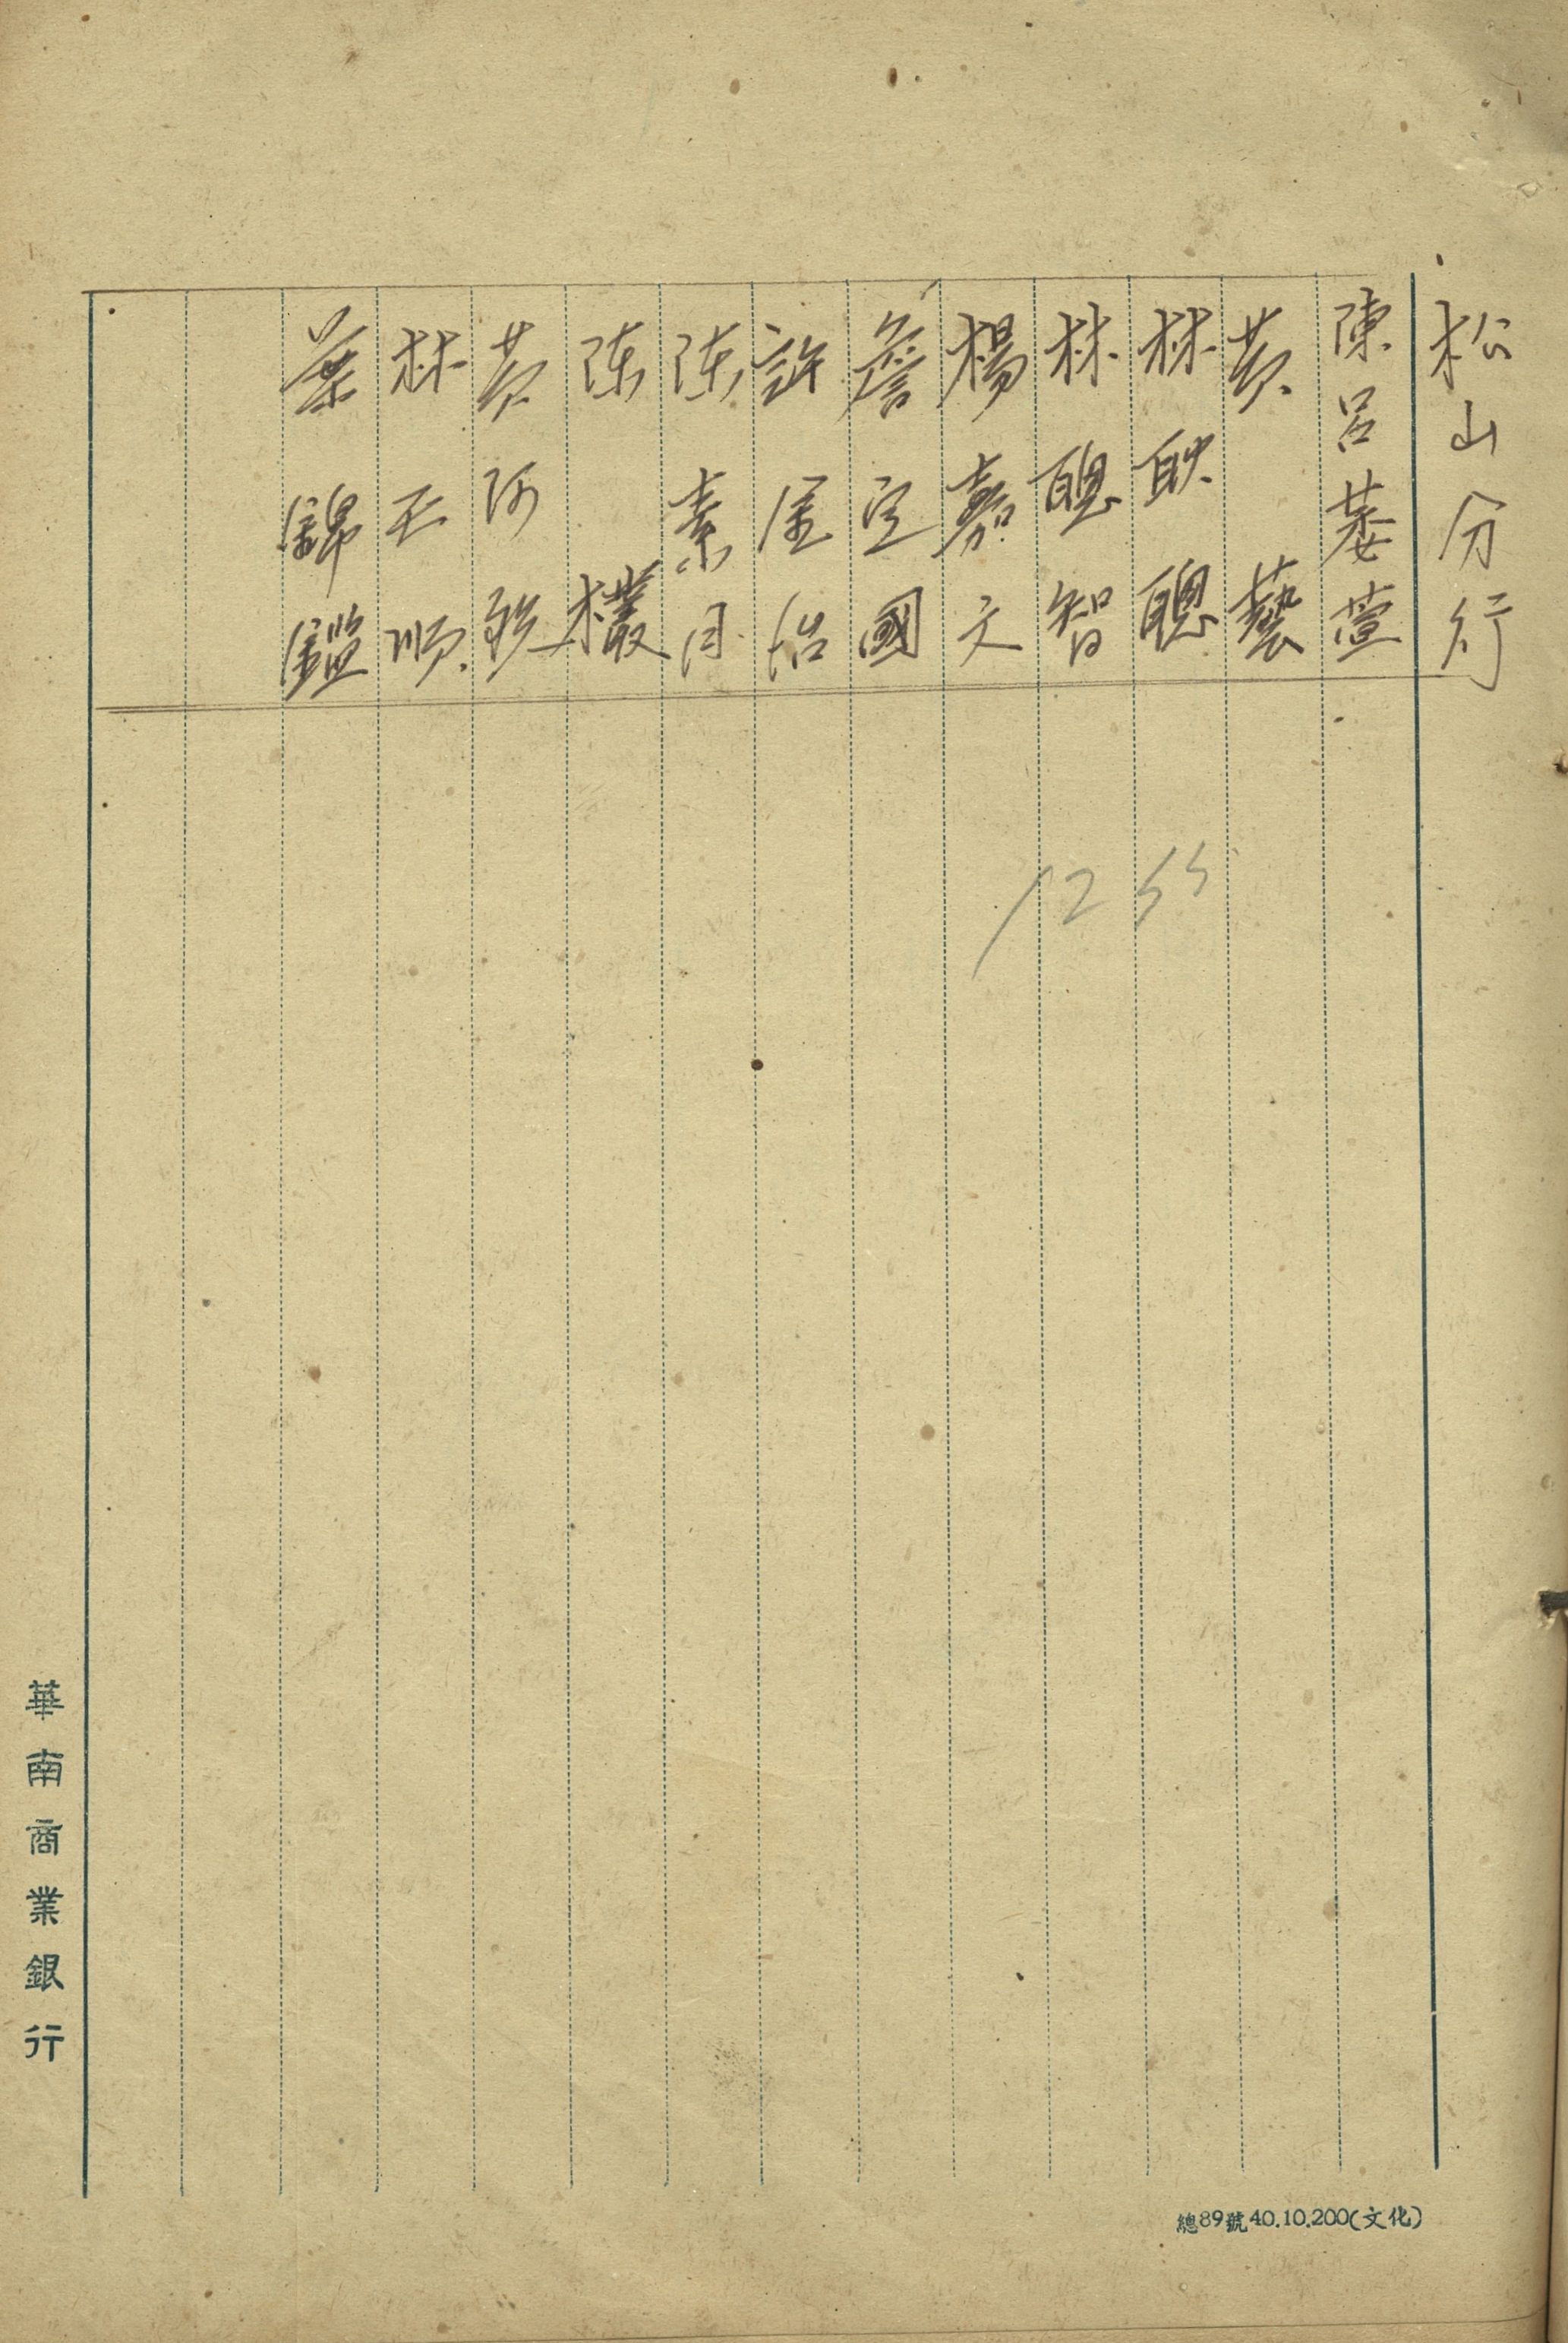 松山分行
陳呂萎萱
黃 藝
林耿聰
林聰智
楊嘉文
詹宜國
許金治
陳素月
陳 欉
黃阿
林天順
葉錦鎰
1255
華南商業銀行
總89號40.10.200(文化)